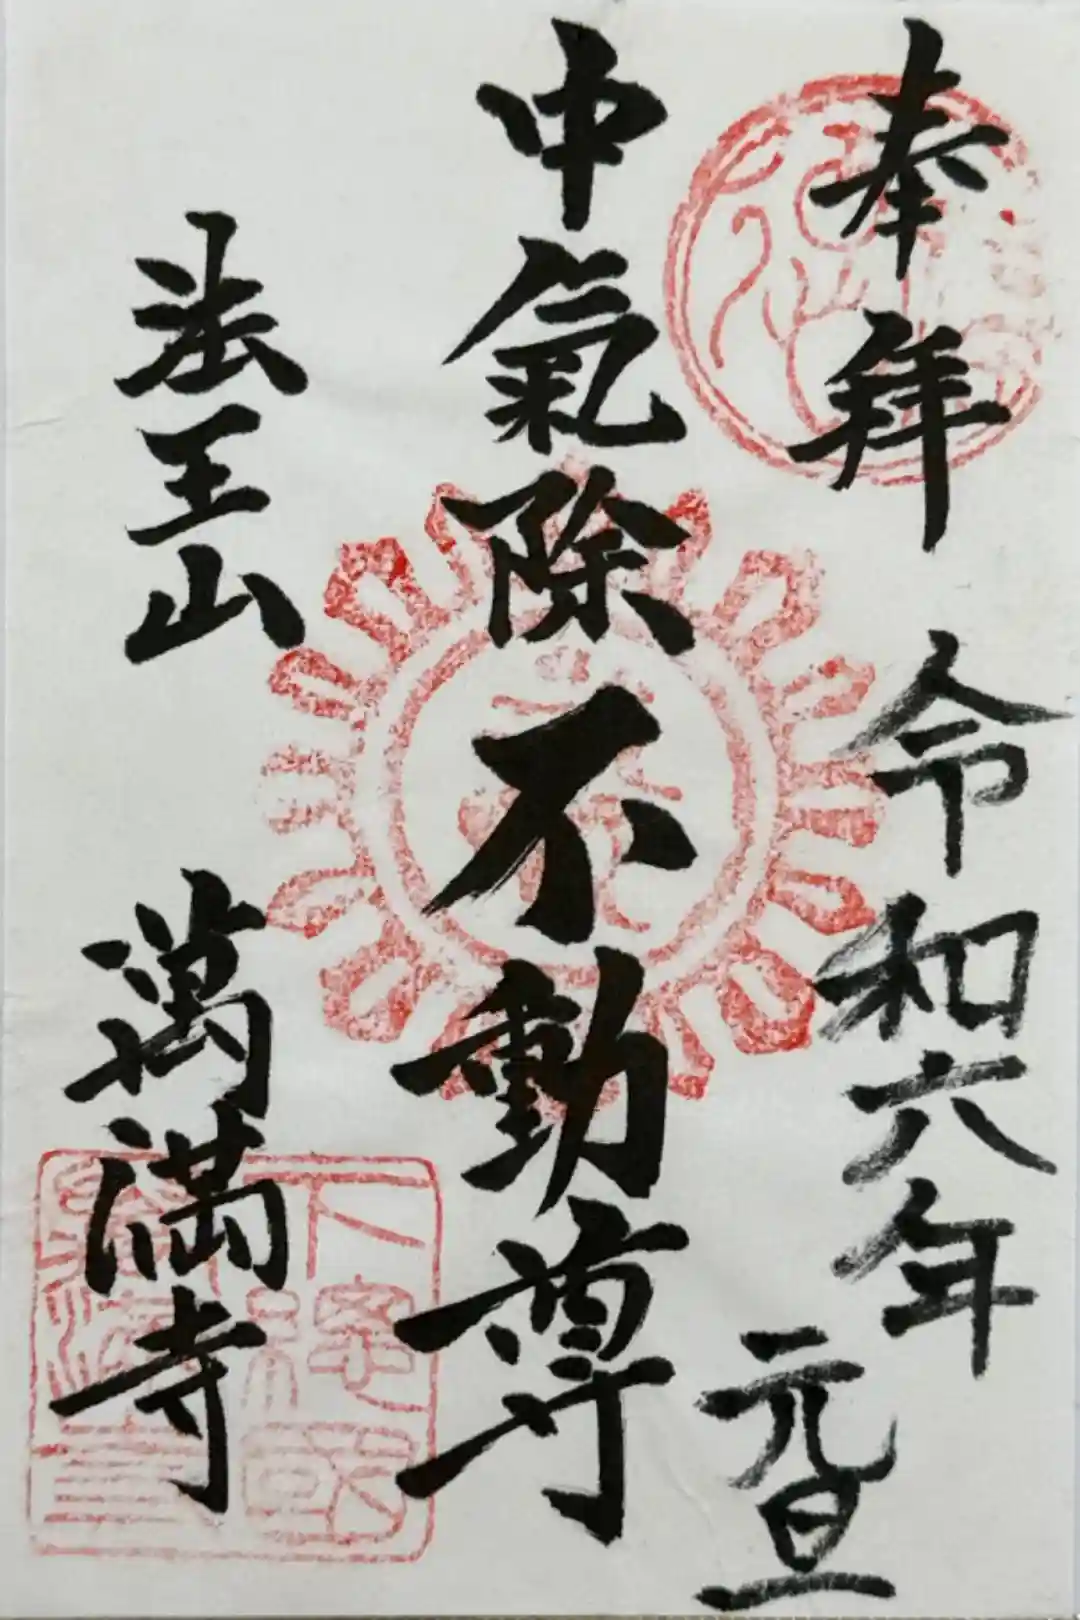 奉拝 令和六年
元旦
中氣除不動尊
法王山 萬満寺
下総国